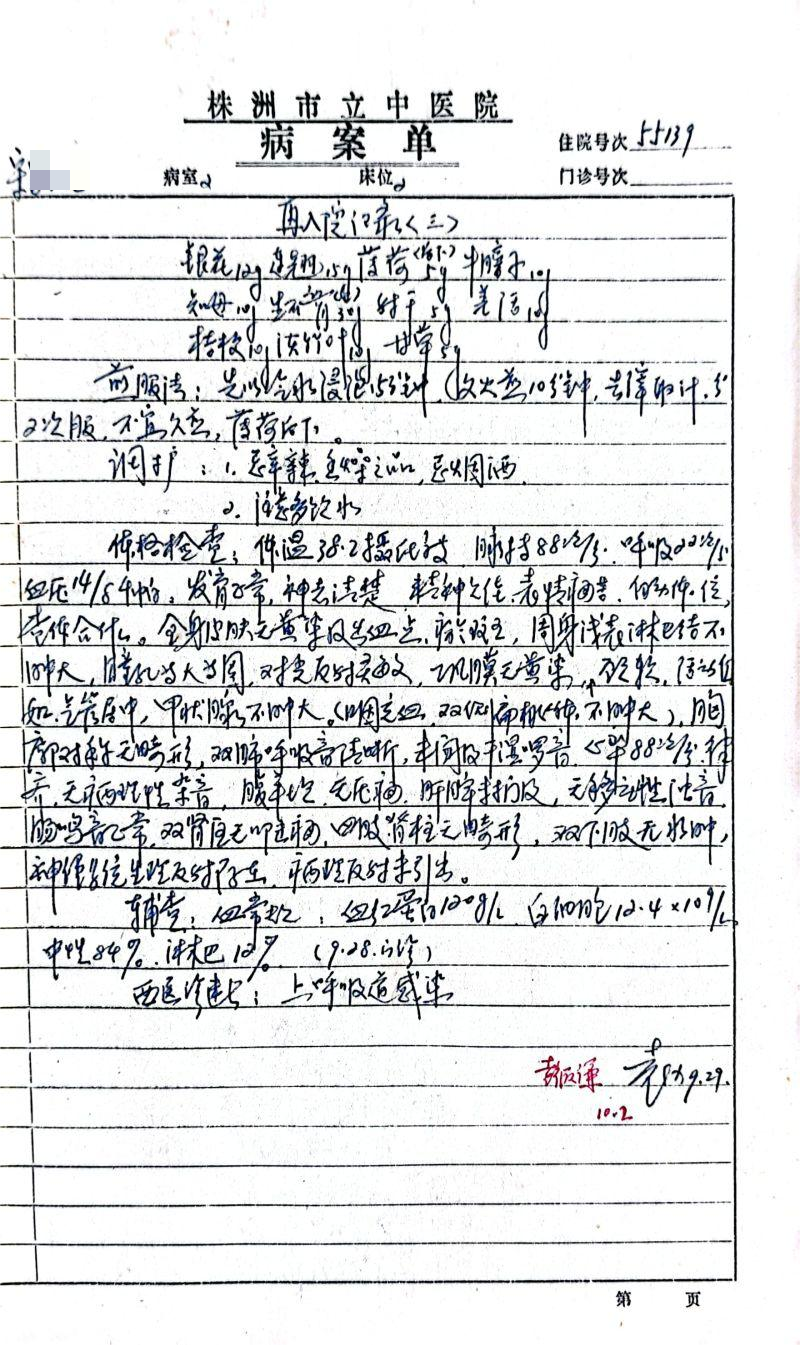 株洲市立中医院
病案单
住院号次 55139
宋
病室2 床位2 门诊号次
再入院记录(三)
银花12g 连翘15g 薄荷(后下)5g 牛蒡子10g
知母10g 生石膏30g 射干5g 10g
桔梗10g 淡竹叶10g 甘草5g
煎服法:先以冷水浸泡15分钟,文火煎10分钟,去滓取汁,分
2次服,不宜久煎,薄荷后下。
调护:1.忌辛辣之品,忌烟酒
2.注意多饮水
体格检查:体温38.2摄氏度 脉搏88次/分 呼吸22次/分
血压14/8千帕。发育正常,神志清楚,精神欠佳,表情痛苦,自动体位,
查体合作。全身皮肤无黄染及出血点,瘀斑,周身浅表淋巴结不
肿大,瞳孔等大等圆,对光反射灵敏,巩膜无黄染,颈软,活动自
如,气管居中,甲状腺不肿大。(咽充血,双侧扁桃体不肿大),胸
廓对称无畸形,双肺呼吸音清晰,未闻及干湿啰音,心率88次/分,律
齐,无病理性杂音,腹平坦,无压痛,肝脾未扪及,无移动性浊音
肠鸣音正常,双肾区无叩击痛,四肢脊柱无畸形,双下肢无水肿,
神经系统生理反射存在,病理反射未引出。
辅查:血常规:血红蛋白120g/L 白细胞12.4×10⁹/L
中性84% 淋巴12% (9.28.门诊)
西医诊断:上呼吸道感染
9.29.
10.2
第 页